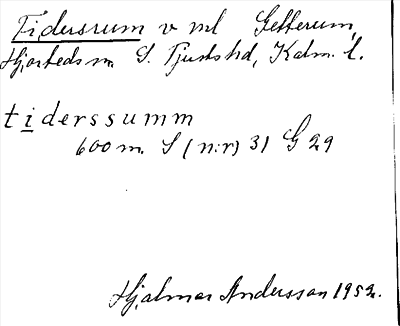 Tidersrum v ml Getterum,
Hjorteds sn S. Tjusts hd, Kalm. l.
tiderssumm
600 m. S (n:r) 31 G 29
Hjalmar Andersson 1952.